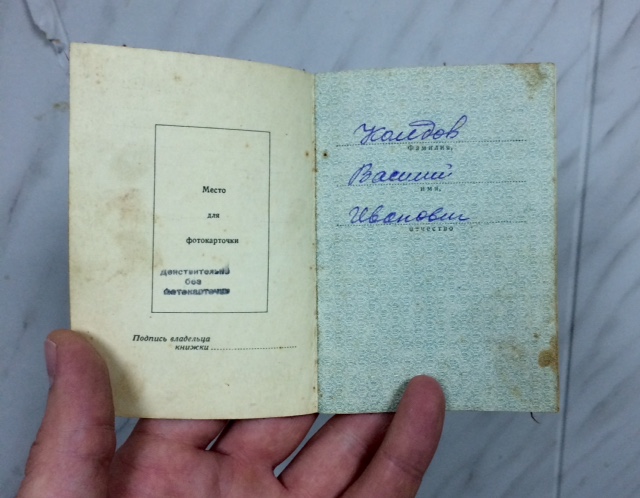 Место
для
фотокарточки
Действительно
без
фотокарточки
Подпись владельца
книжки
Фамилия,
Василий
имя,
Иванович
отчество